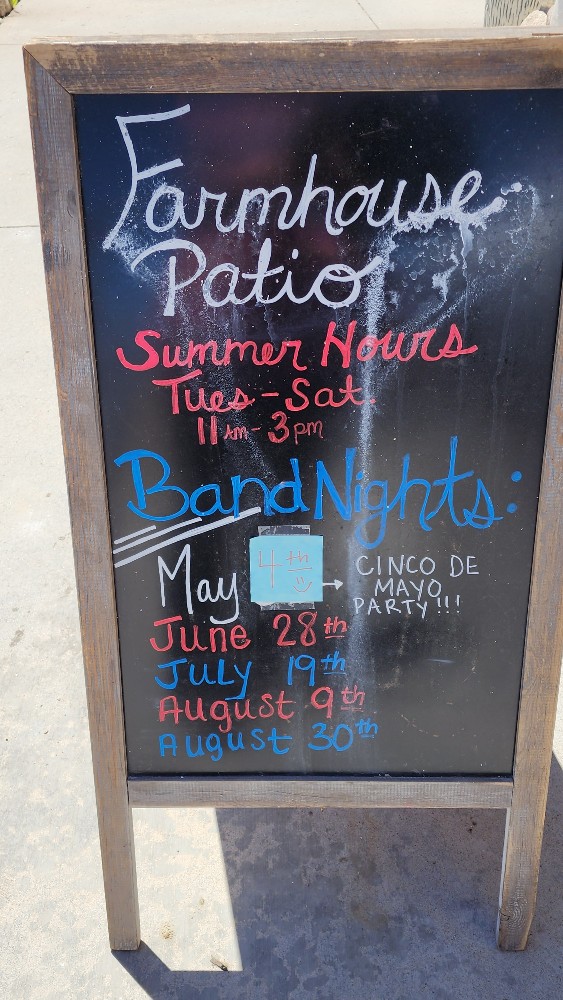 Farmhouse
Patio
Summer Hours
Tues-Sat.
11am-3pm
Band Nights:
May 4th → CINCO DE
MAYO
PARTY!!!
June 28th
JULY 19th
August 9th
August 30th